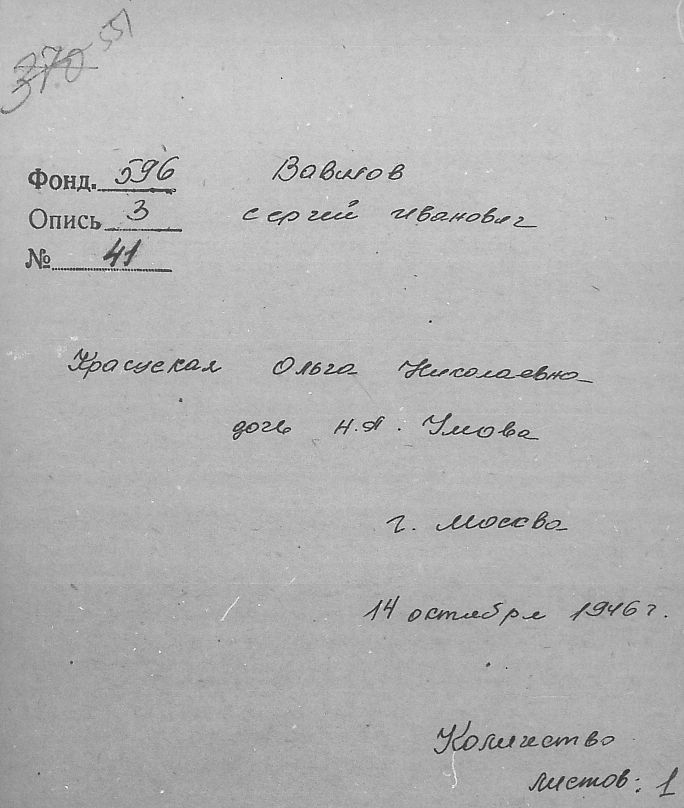 370 551
Фонд. 596
Опись 3
№ 41
Вавилов
Сергей Иванович
Красуская Ольга Николаевна
дочь Н.А. Умова
г. Москва
14 октября 1946 г.
Количество
листов: 1